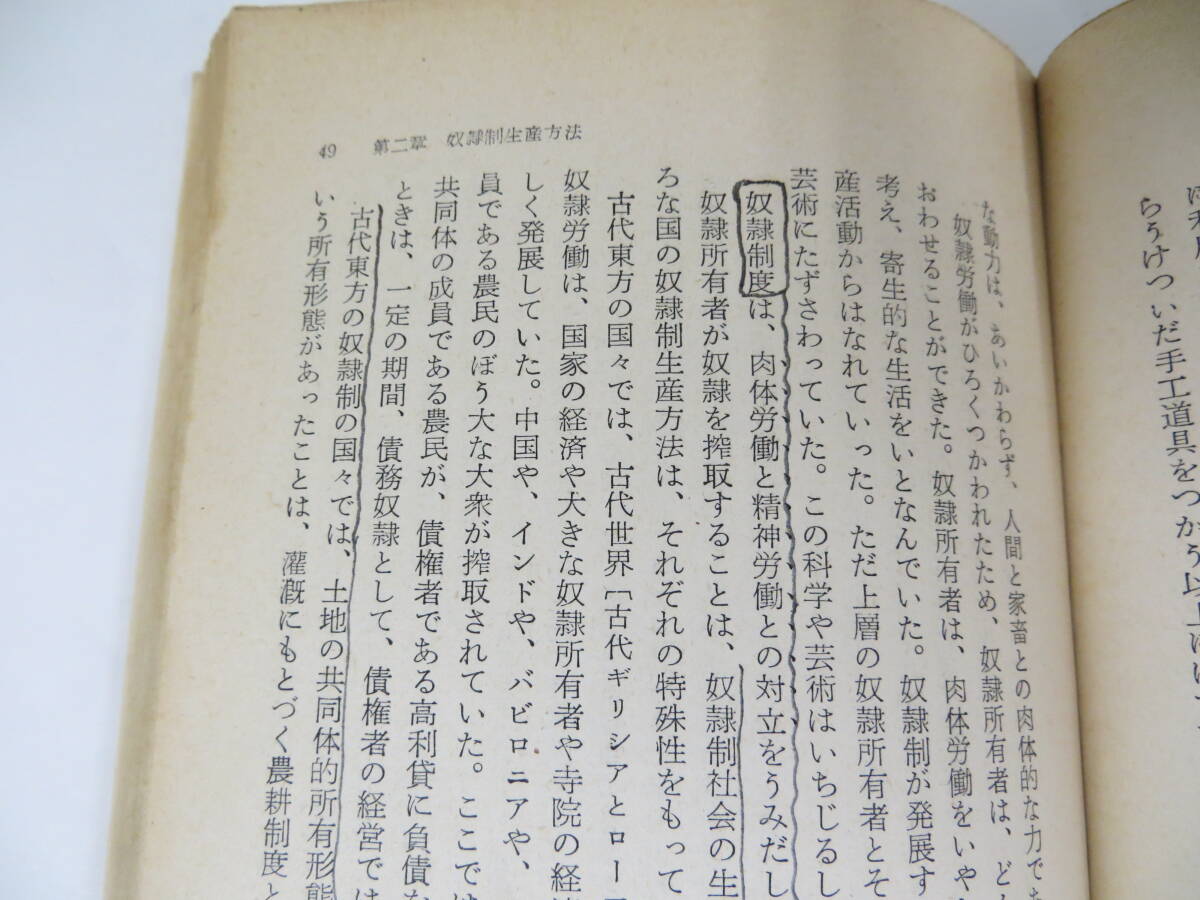 らうけついだ手工道具をつかう以上に
49 第二章 奴隷制生産方法
な動力は、あいかわらず、人間と家畜との肉体的な力であ
奴隷労働がひろくつかわれたため、奴隷所有者は、ど
おわせることができた。奴隷所有者は、肉体労働をいや
考え、寄生的な生活をいとなんでいた。奴隷制が発展す
産活動からはなれていった。ただ上層の奴隷所有者とそ
芸術にたずさわっていた。この科学や芸術はいちじるし
奴隷制度は、肉体労働と精神労働との対立をうみだし
奴隷所有者が奴隷を搾取することは、奴隷制社会の生
ろな国の奴隷制生産方法は、それぞれの特殊性をもって
古代東方の国々では、古代世界〔古代ギリシアとロー
奴隷労働は、国家の経済や大きな奴隷所有者や寺院の経
しく発展していた。中国や、インドや、バビロニアや、
員である農民のぼう大な大衆が搾取されていた。ここでは
共同体の成員である農民が、債権者である高利貸に負債
ときは、一定の期間、債務奴隷として、債権者の経営では
古代東方の奴隷制の国々では、土地の共同体的所有形態
いう所有形態があったことは、灌漑にもとづく農耕制度と